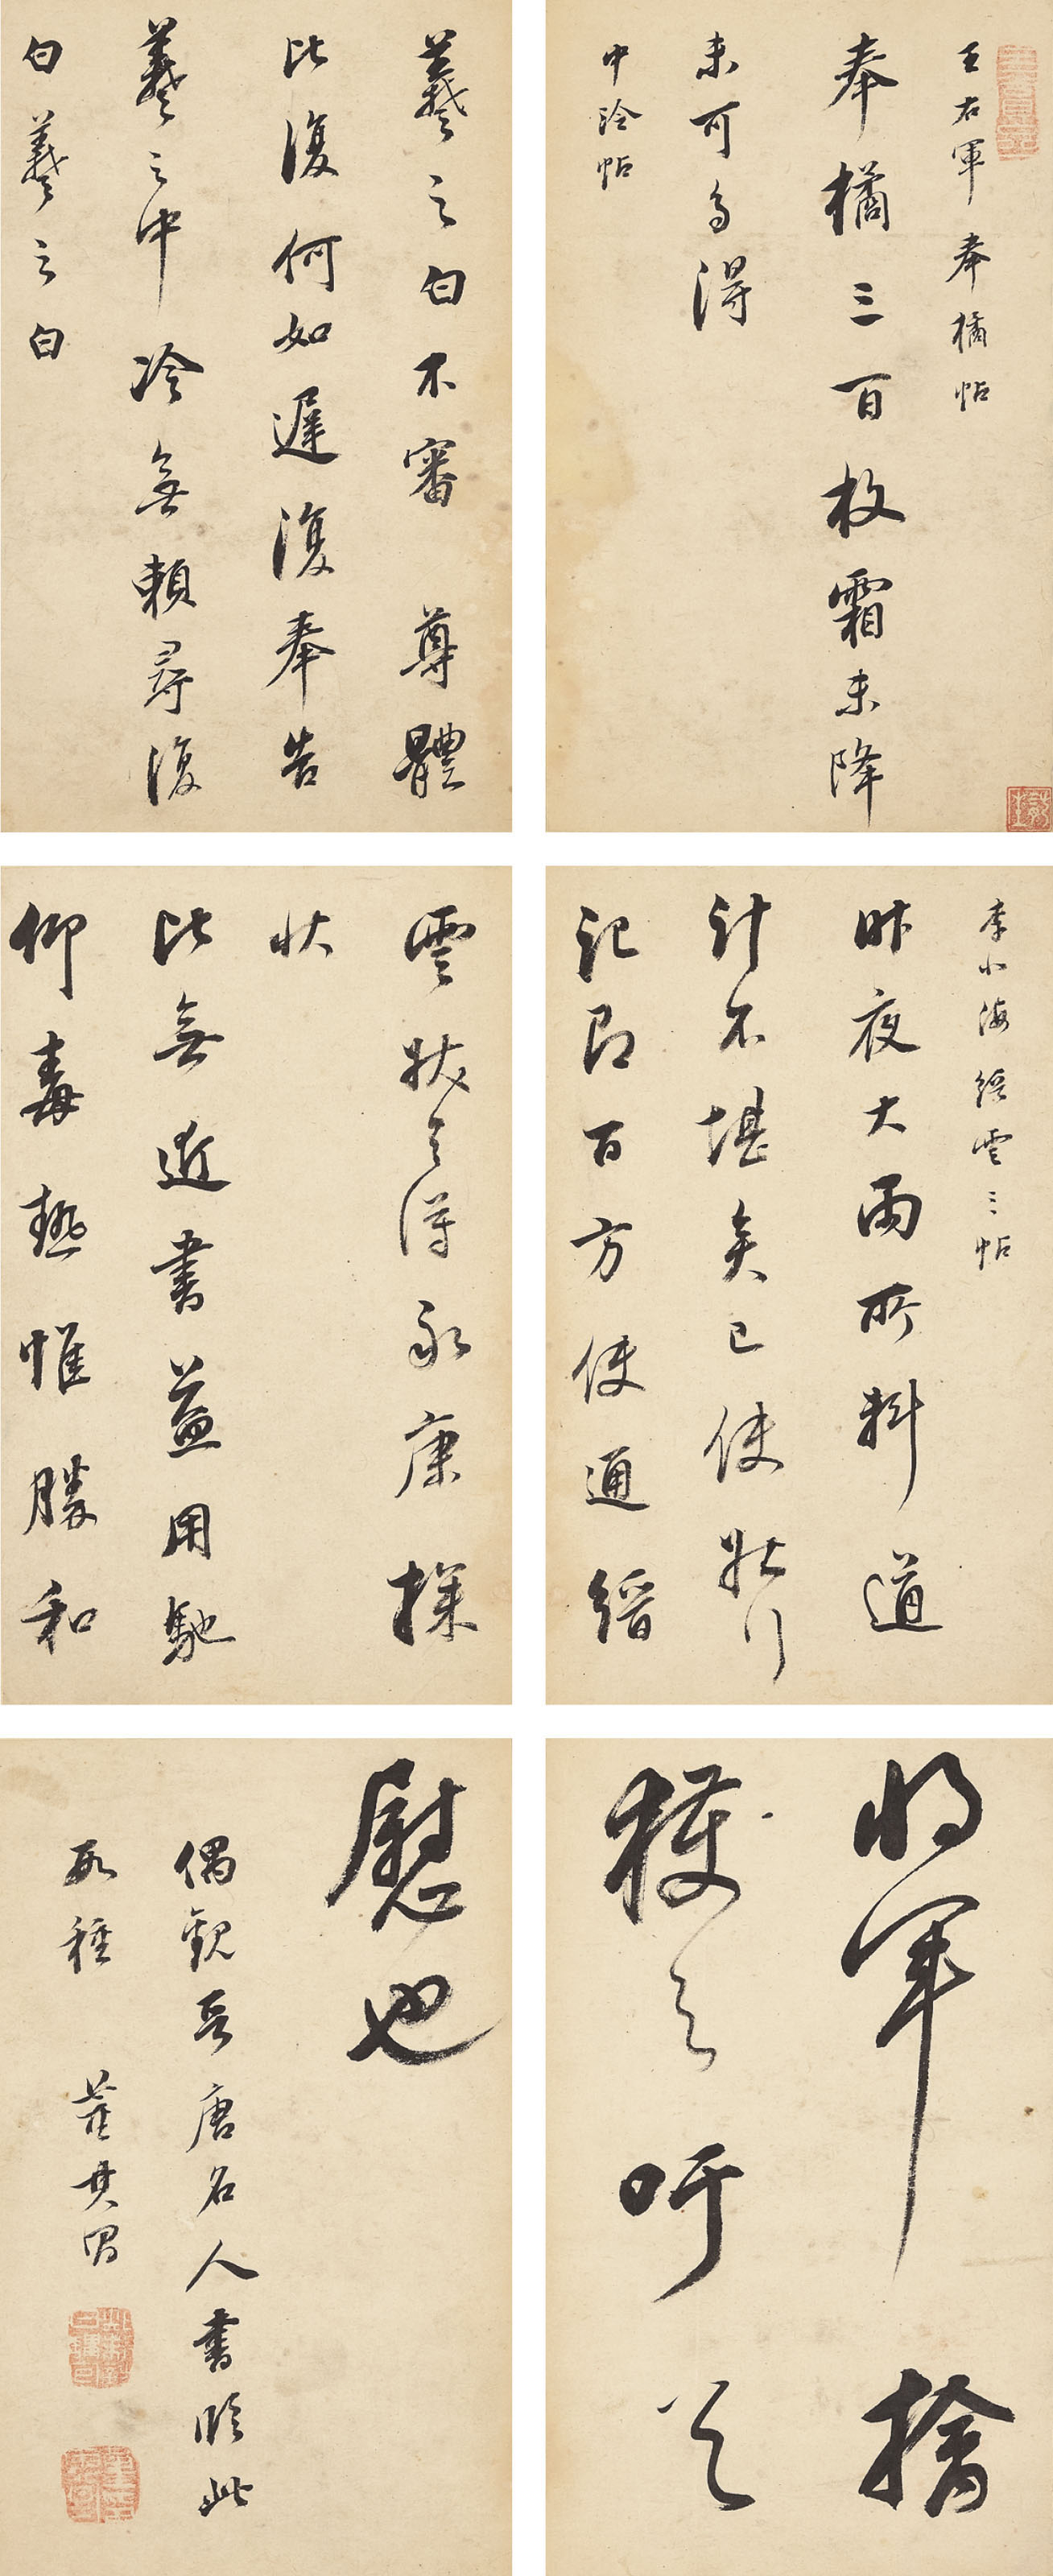 王右軍奉橘帖
奉橘三百枚霜未降
未可多得
中冷帖
羲之白不審尊體
比復何如遲復奉告
羲之中冷無賴尋復
白羲之白
李北海縉雲三帖
昨夜大雨所料道
計不堪矣已使狀行
記即百方使通縉
雲狀之得永康採
狀
比無近書益用馳
仰毒熱惟勝和
將軍擒
獲之吁足
慰也
偶觀晉唐名人書臨此
數種 董其昌